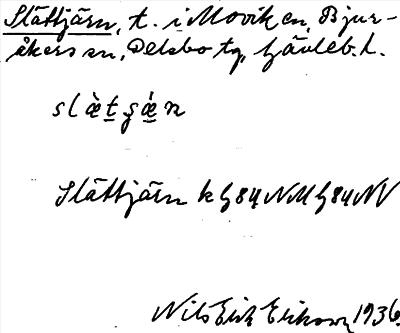 Slättjärn, t. i Moviken, Bjur-
åkers sn, Delsbo tg, Gävleb. l.
slæ̀t̠ʂǽ̠n
Slättjärn k G84NM G84NV
Nils Erik Eriksson 1936.